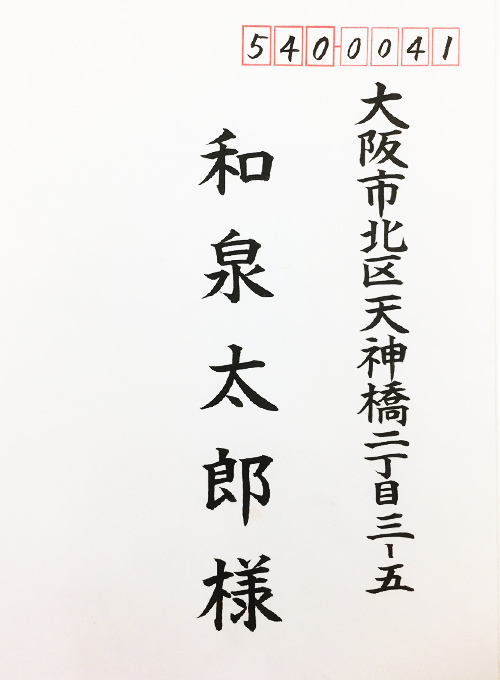 540-0041
大阪市北区天神橋二丁目三-五
和泉太郎様